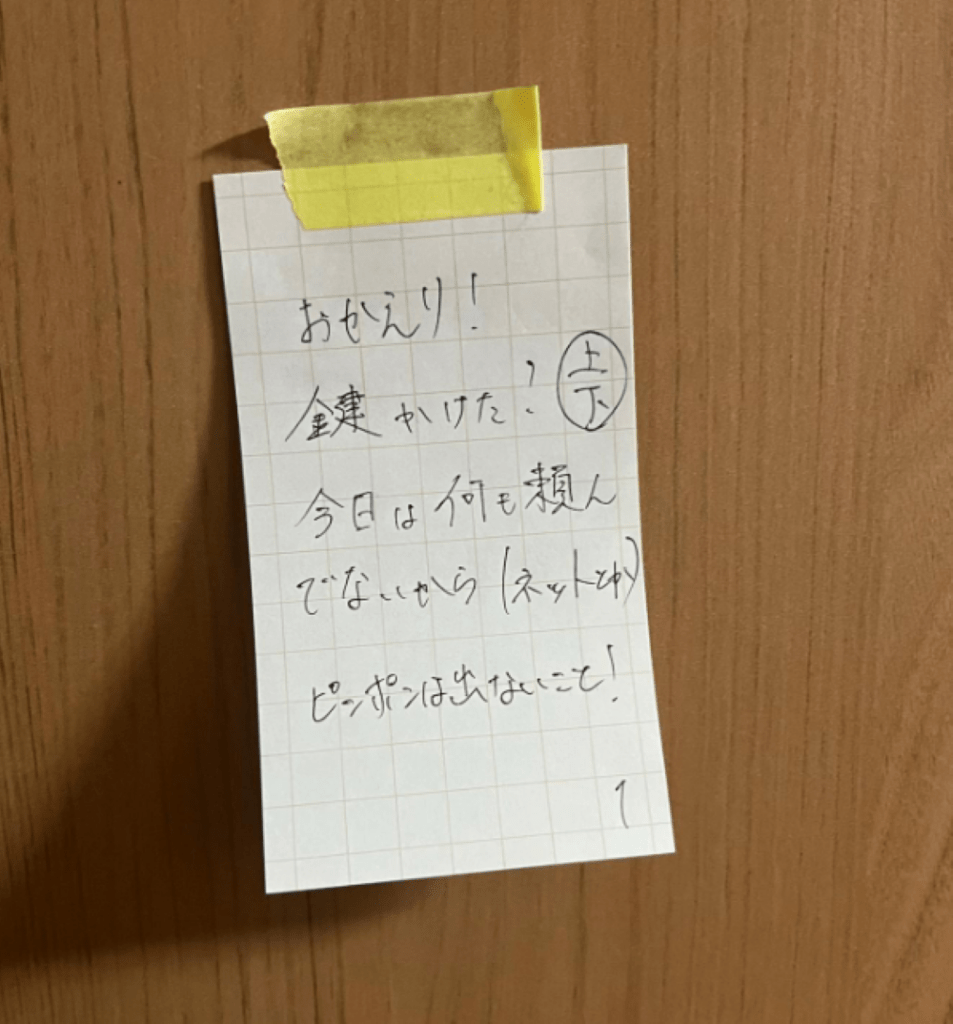 おかえり!
鍵かけた? 上下
今日は何も頼ん
でないから(ネットとか)
ピンポンは出ないこと!
1